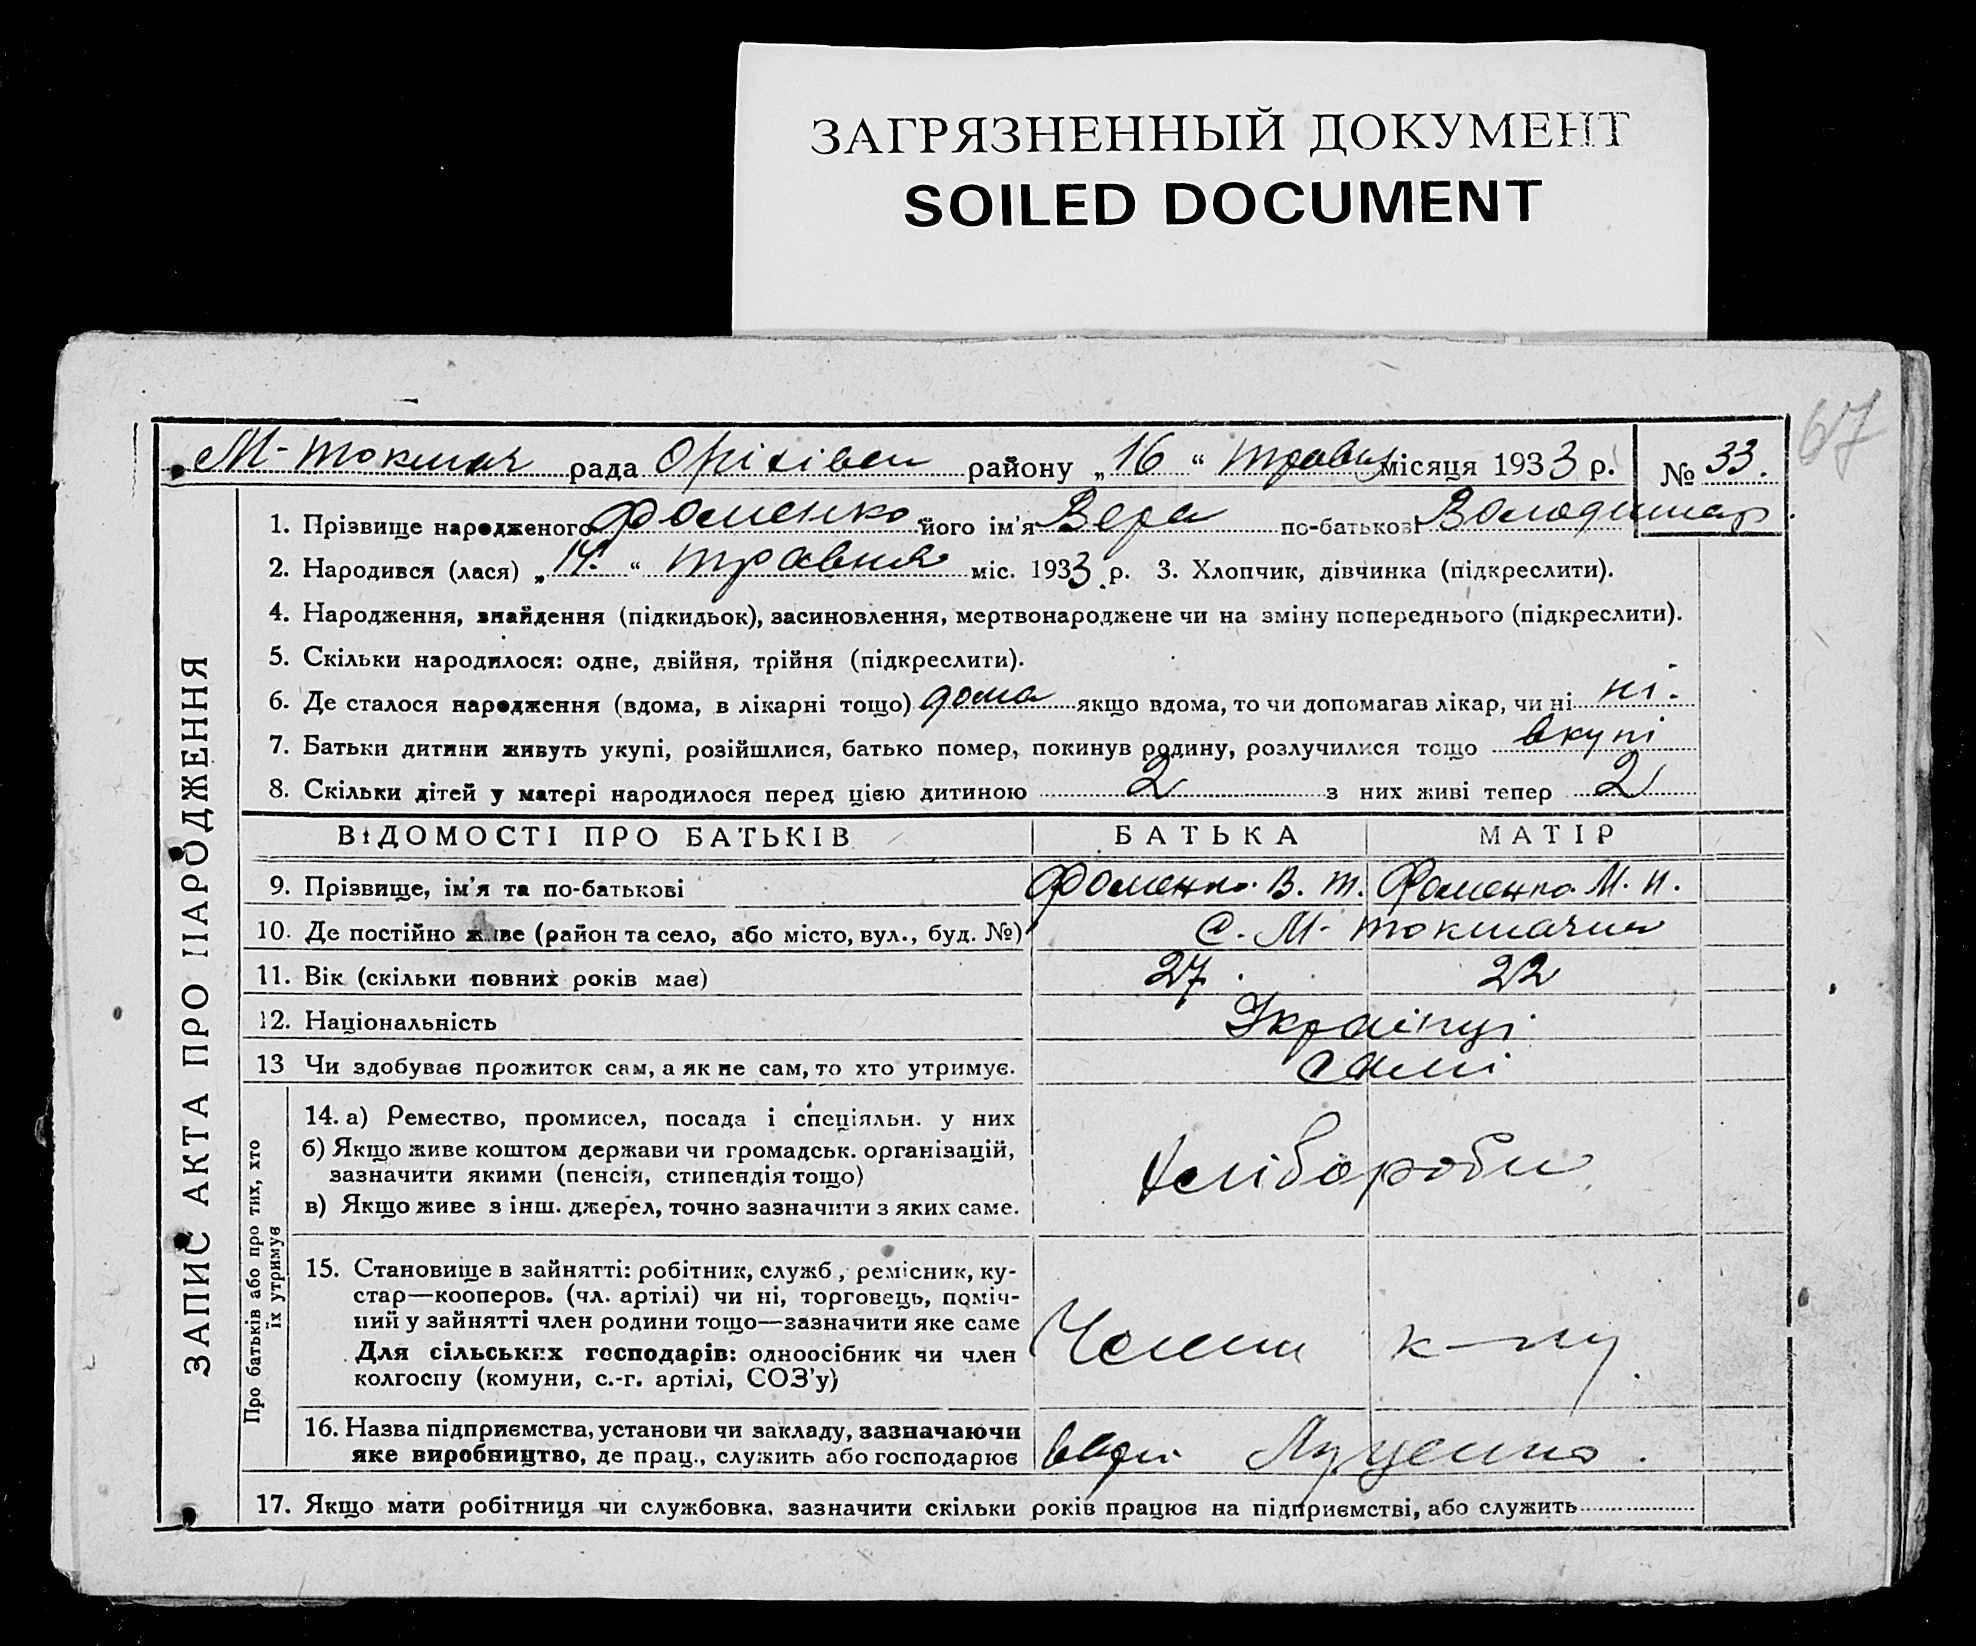 ЗАГРЯЗНЕННЫЙ ДОКУМЕНТ
SOILED DOCUMENT
67
М-Токмач рада Оріхівськ району „16“ травня місяця 1933 р. № 33.
1. Прізвище народженого Фоменко його ім'я Вера по-батькові Володимир.
2. Народився (лася) „14.“ травня міс. 1933 р. 3. Хлопчик, дівчинка (підкреслити).
4. Народження, знайдення (підкидьок), засиновлення, мертвонароджене чи на зміну попереднього (підкреслити).
5. Скільки народилося: одне, двійня, трійня (підкреслити).
6. Де сталося народження (вдома, в лікарні тощо) дома якщо вдома, то чи допомагав лікар, чи ні ні.
7. Батьки дитини живуть укупі, розійшлися, батько помер, покинув родину, розлучилися тощо вкупі
8. Скільки дітей у матері народилося перед цією дитиною 2 з них живі тепер 2
ЗАПИС АКТА ПРО НАРОДЖЕННЯ
ВІДОМОСТІ ПРО БАТЬКІВ БАТЬКА МАТІР
9. Прізвище, ім'я та по-батькові Фоменко В. Т. Фоменко М. П.
10. Де постійно живе (район та село, або місто, вул., буд. №) с. М-Токмачка
11. Вік (скільки повних років має) 27. 22
12. Національність Українці
13 Чи здобуває прожиток сам, а як не сам, то хто утримує. самі
Про батьків або про тих, хто
їх утримує
14. а) Ремество, промисел, посада і спеціяльн. у них
б) Якщо живе коштом держави чи громадськ. організацій,
зазначити якими (пенсія, стипендія тощо)
хлібороби
в) Якщо живе з інш. джерел, точно зазначити з яких саме.
15. Становище в зайнятті: робітник, служб, ремісник, ку-
стар—кооперов. (чл. артілі) чи ні, торговець, поміч-
ний у зайнятті член родини тощо—зазначити яке саме
Для сільських господарів: одноосібник чи член
колгоспу (комуни, с.-г. артілі, СОЗ'у)
Члени к-пу.
16. Назва підприємства, установи чи закладу, зазначаючи
яке виробництво, де прац., служить або господарює
Луценко.
17. Якщо мати робітниця чи службовка, зазначити скільки років працює на підприємстві, або служить